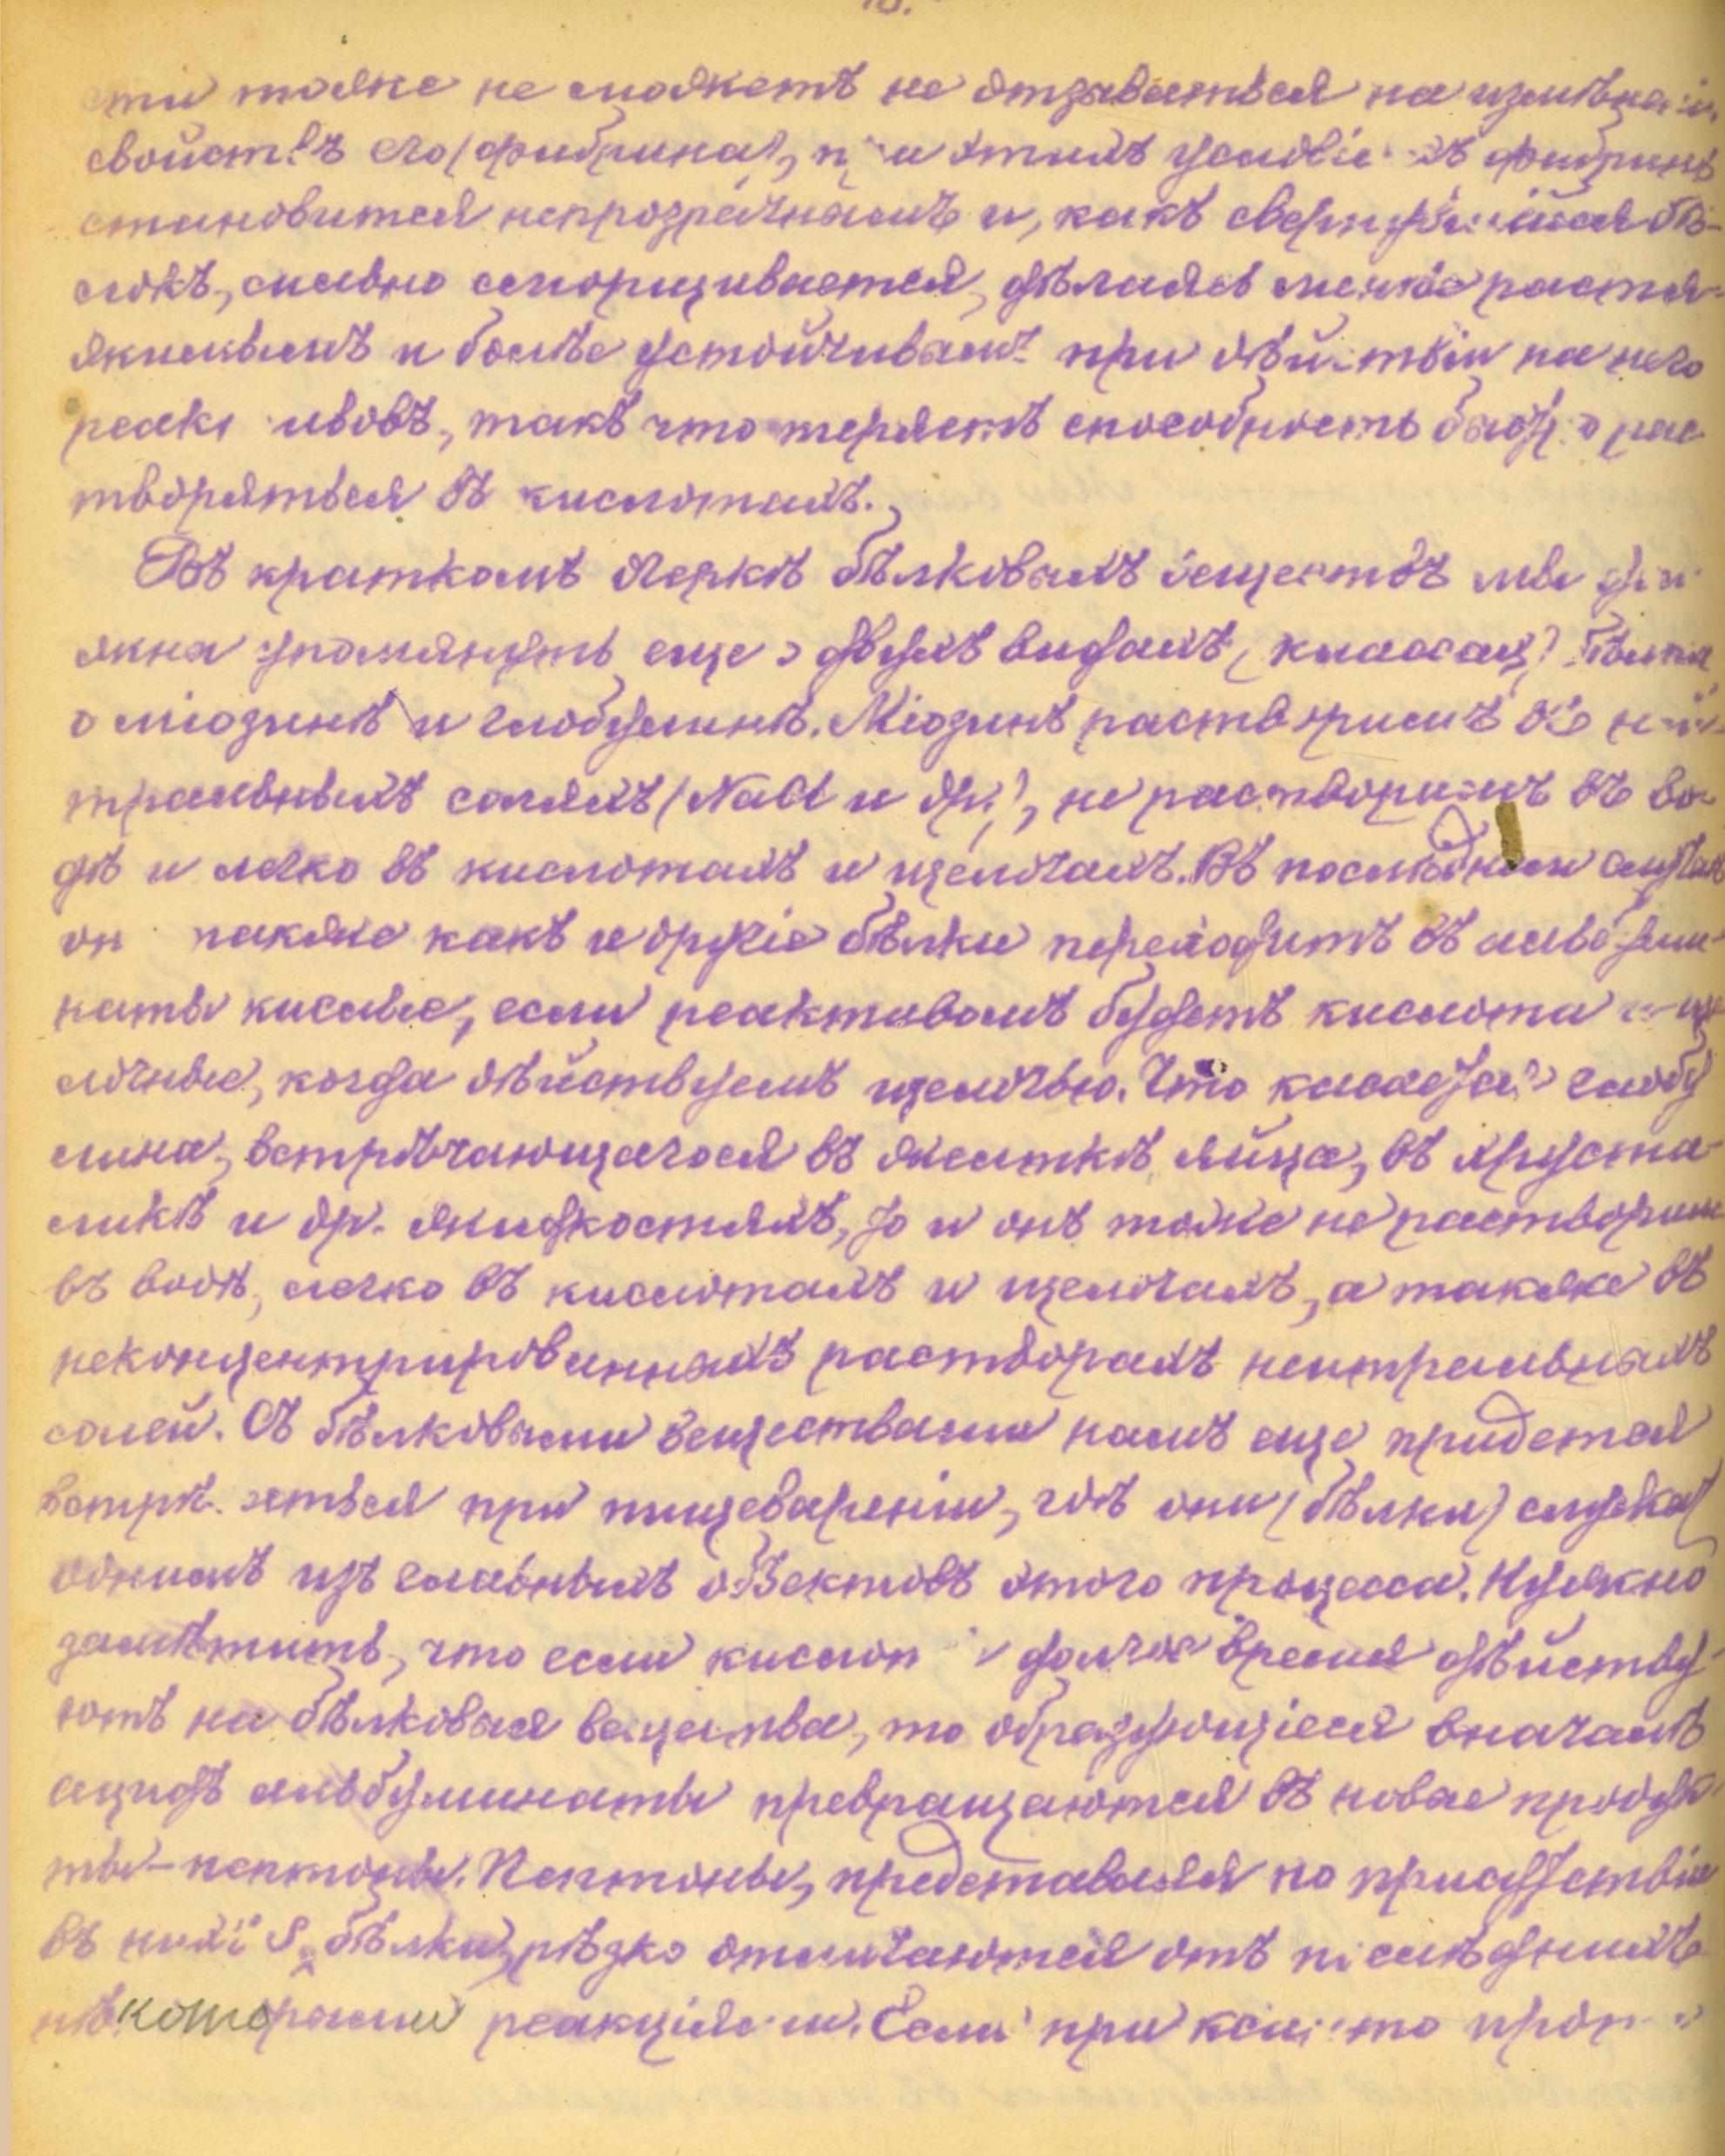 сти также не можетъ не отзываться на измѣненіи
свойствъ его (фибрина), при этихъ условіяхъ фибринъ
становится непрозрачнымъ и, какъ свернувшійся бѣ-
локъ, сильно сморщивается, дѣлаясь менѣе растя-
жимымъ и болѣе устойчивымъ при дѣйствіи на него
реактивовъ, такъ что теряетъ способность быстро рас
творяться въ кислотахъ.
Въ краткомъ очеркѣ бѣлковыхъ веществъ мы дол
жны упомянуть еще о двухъ видахъ (классахъ) бѣлка
о міозинѣ и глобулинѣ. Міозинъ растворимъ въ ней
тральныхъ соляхъ (NaCl и др.), не растворимъ въ во-
дѣ и легко въ кислотахъ и щелочахъ. Въ послѣднемъ случаѣ
он также какъ и другіе бѣлки переходитъ въ альбуми-
наты кислые, если реактивомъ будетъ кислота и ще
лочные, когда дѣйствуемъ щелочью. Что касается глобу
лина, встрѣчающагося въ желткѣ яйца, въ хруста-
ликѣ и др. жидкостяхъ, то и онъ также не растворим
въ водѣ, легко въ кислотахъ и щелочахъ, а также въ
неконцентрированныхъ растворахъ неитральныхъ
солей. Съ бѣлковыми веществами намъ еще придется
встрѣчаться при пищевареніи, гдѣ они (бѣлки) служат
однимъ изъ главныхъ объектовъ этого процесса. Нужно
замѣтить, что если кислоты долгое время дѣйству-
ютъ на бѣлковыя вещества, то образующіеся вначалѣ
ацидъ альбуминаты превращаются въ новые продук
ты - пептоны. Пептоны, представляя по присутствію
въ нихъ S, бѣлки, рѣзко отличаются отъ послѣднихъ
нѣкоторыми реакціями. Если при